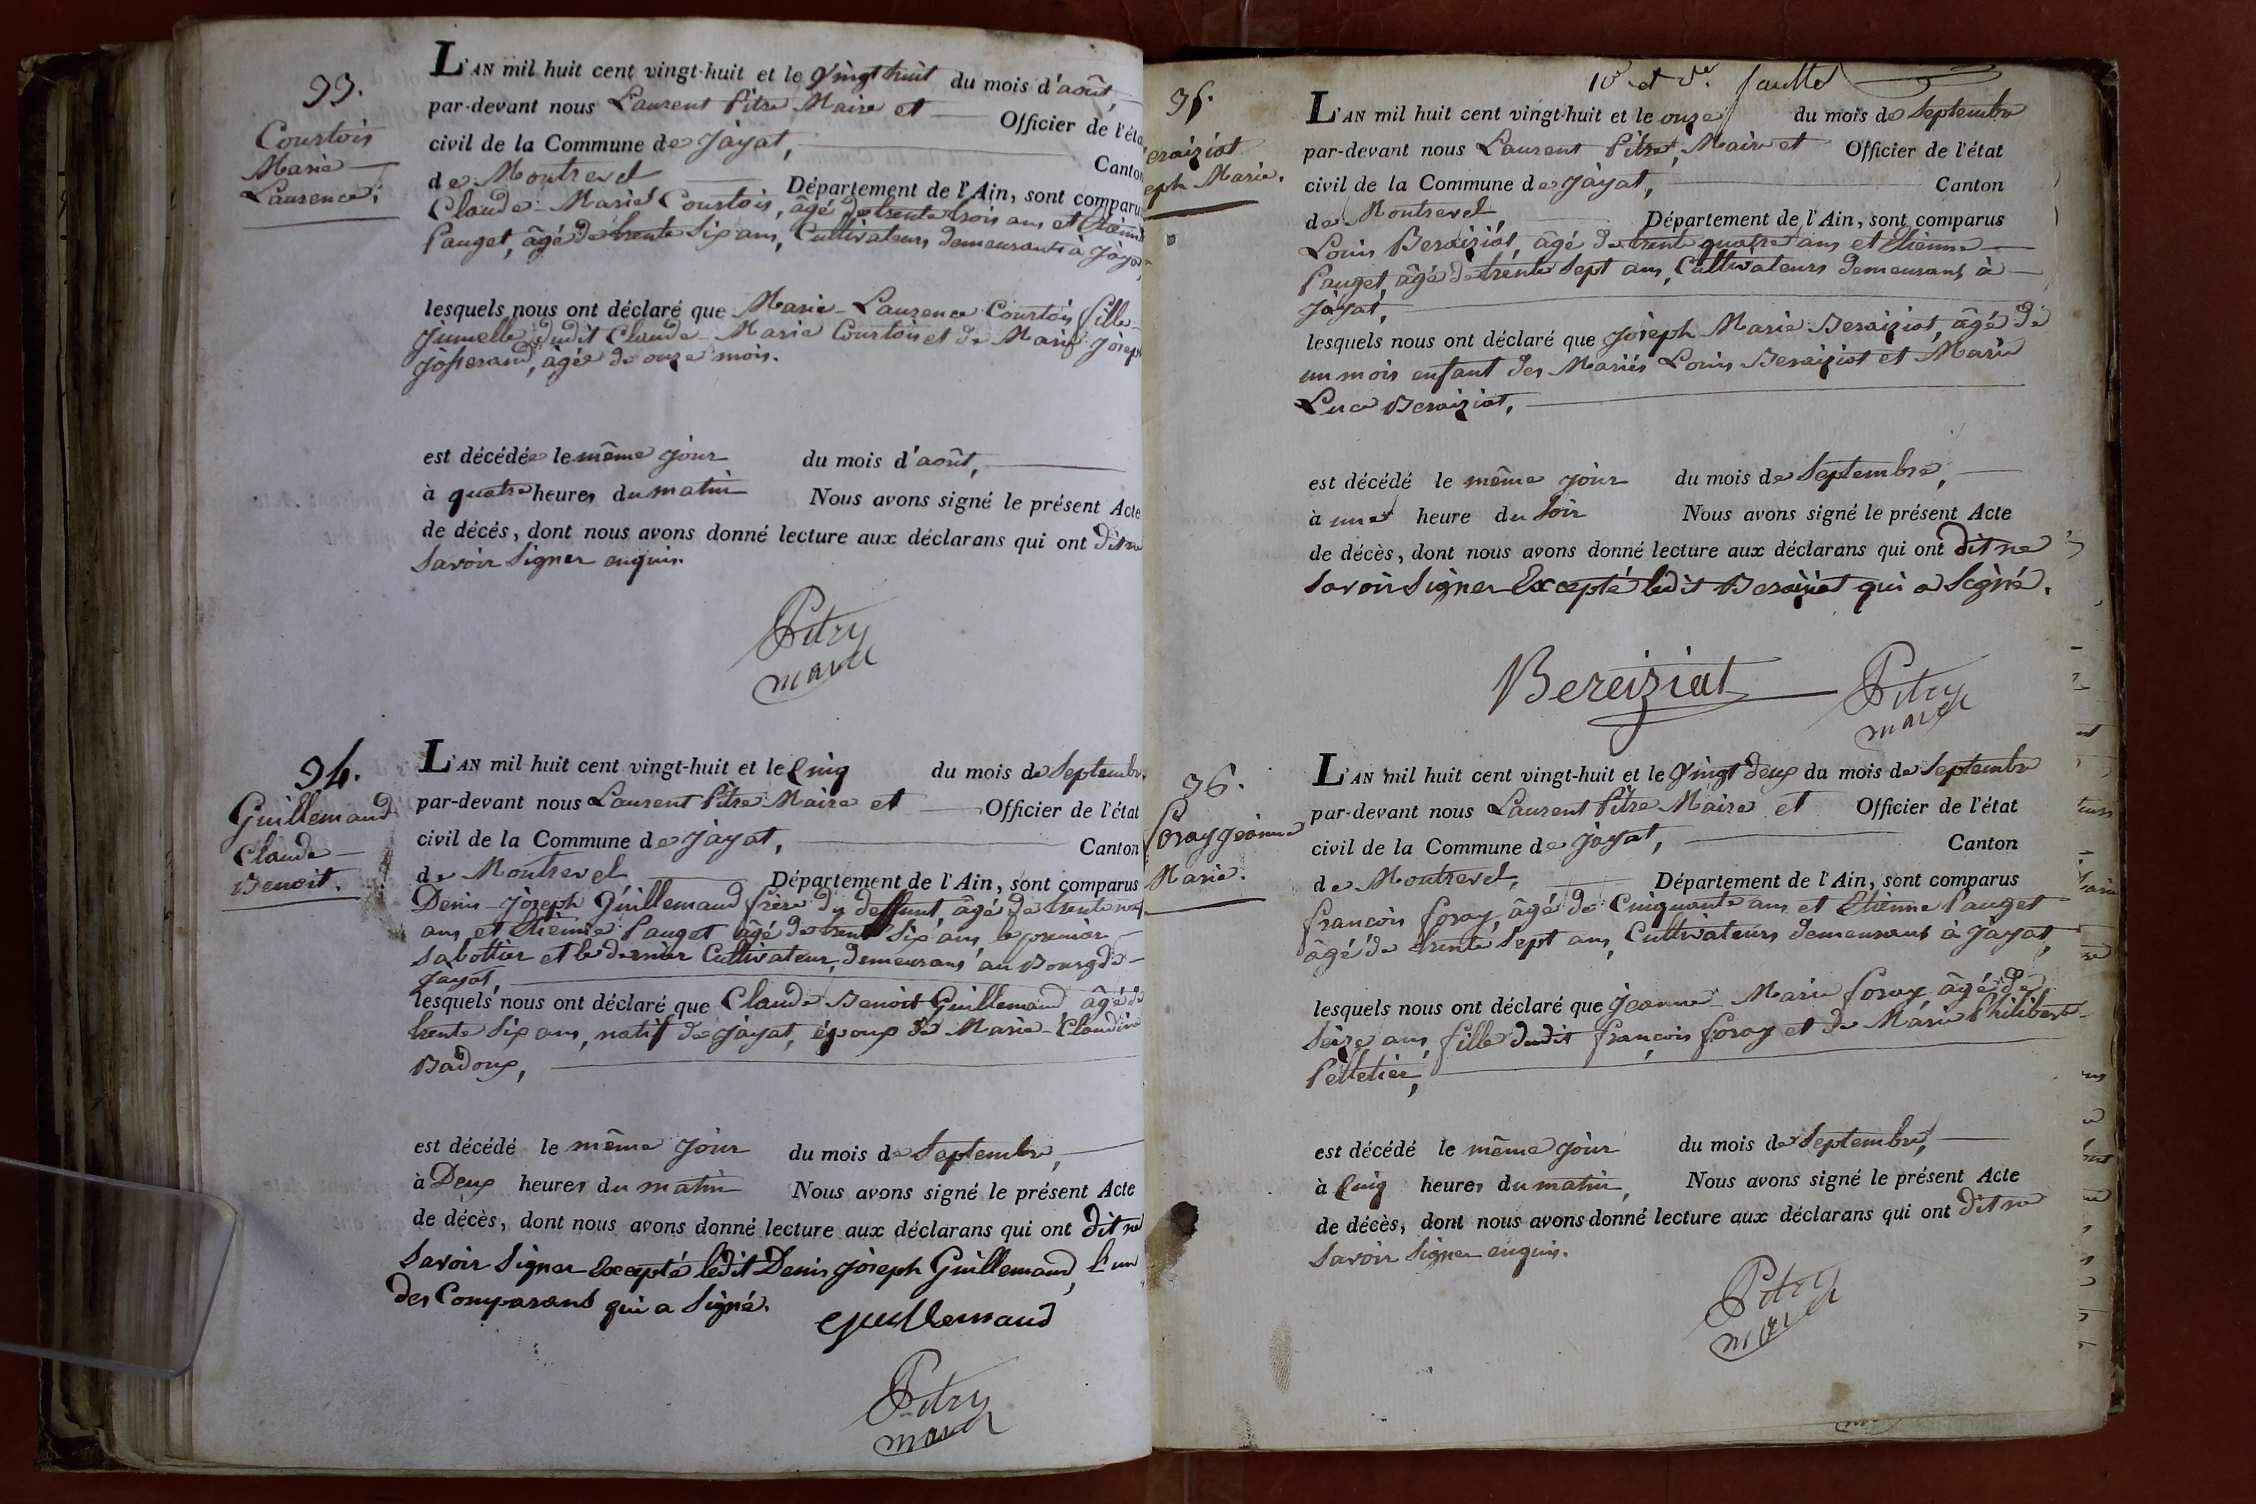 33.
Courtois
Marie
Laurence.
L'AN mil huit cent vingt-huit et le Vingt huit du mois d'août,
par-devant nous Laurent Pitre Maire et Officier de l'éta
civil de la Commune de Jayat, Canton
de Montrevel Département de l'Ain, sont comparu
Claude-Marie Courtois, âgé de trente trois ans et Etienne
Pauget, âgé de trente six ans, Cultivateurs demeurants à Jaya
lesquels nous ont déclaré que Marie-Laurence Courtois fille
jumelle dudit Claude-Marie Courtois et de Marie Joseph
Josserand, âgée de onze mois.
est décédée le même jour du mois d'août,
à quatre heures du matin Nous avons signé le présent Acte
de décès, dont nous avons donné lecture aux déclarans qui ont dit ne
savoir signer enquis.
Pitre
maire
34.
Guillemaud
Claude
Benoit.
L'AN mil huit cent vingt-huit et le Cinq du mois de Septembre
par-devant nous Laurent Pitre Maire et Officier de l'état
civil de la Commune de Jayat, Canton
de Montrevel Département de l'Ain, sont comparus
Denis-Joseph Guillemaud frère du deffunt, âgé de trente neuf
ans et Etienne Pauget âgé de trente six ans, le premier
sabottier et le dernier Cultivateur, demeurans au Bourg de
Jayat,
lesquels nous ont déclaré que Claude Benoit Guillemaud âgé de
trente six ans, natif de Jayat, époux de Marie-Claudine
Badoux,
est décédé le même jour du mois de Septembre,
à Deux heures du matin Nous avons signé le présent Acte
de décès, dont nous avons donné lecture aux déclarans qui ont dit ne
savoir signer Excepté ledit Denis Joseph Guillemaud, l'un
des Comparans qui a signé.
Guillemaud
Pitre
maire
10e et de feuillet
35.
eraiziat
eph Marie.
L'AN mil huit cent vingt-huit et le onze du mois de Septembre
par-devant nous Laurent Pitre, Maire et Officier de l'état
civil de la Commune de Jayat, Canton
de Montrevel, Département de l'Ain, sont comparus
Louis Beraiziat, âgé de trente quatre ans et Etienne
Pauget, âgé de trente sept ans, Cultivateurs demeurans à
Jayat,
lesquels nous ont déclaré que Joseph Marie Beraiziat, âgé de
un mois enfant des Mariés Louis Beraiziat et Marie
Luce Beraiziat,
est décédé le même jour du mois de Septembre,
à une heure du soir Nous avons signé le présent Acte
de décès, dont nous avons donné lecture aux déclarans qui ont dit ne
savoir signer Excepté ledit Beraiziat qui a Signé.
Bereiziat
Pitre
maire
36.
foray jeanne
Marie.
L'AN mil huit cent vingt-huit et le Vingt deux du mois de Septembre
par-devant nous Laurent Pitre Maire et Officier de l'état
civil de la Commune de Jayat, Canton
de Montrevel, Département de l'Ain, sont comparus
francois foray, âgé de Cinquante ans et Etienne Pauget
âgé de trente sept ans, Cultivateurs demeurans à Jayat,
lesquels nous ont déclaré que Jeanne-Marie foray âgée de
seize ans, fille dudit françois foray et de Marie Philiberte
Pelletier,
est décédé le même jour du mois de Septembre,
à Cinq heures du matin, Nous avons signé le présent Acte
de décès, dont nous avons donné lecture aux déclarans qui ont dit ne
savoir signer enquis.
Pitre
maire